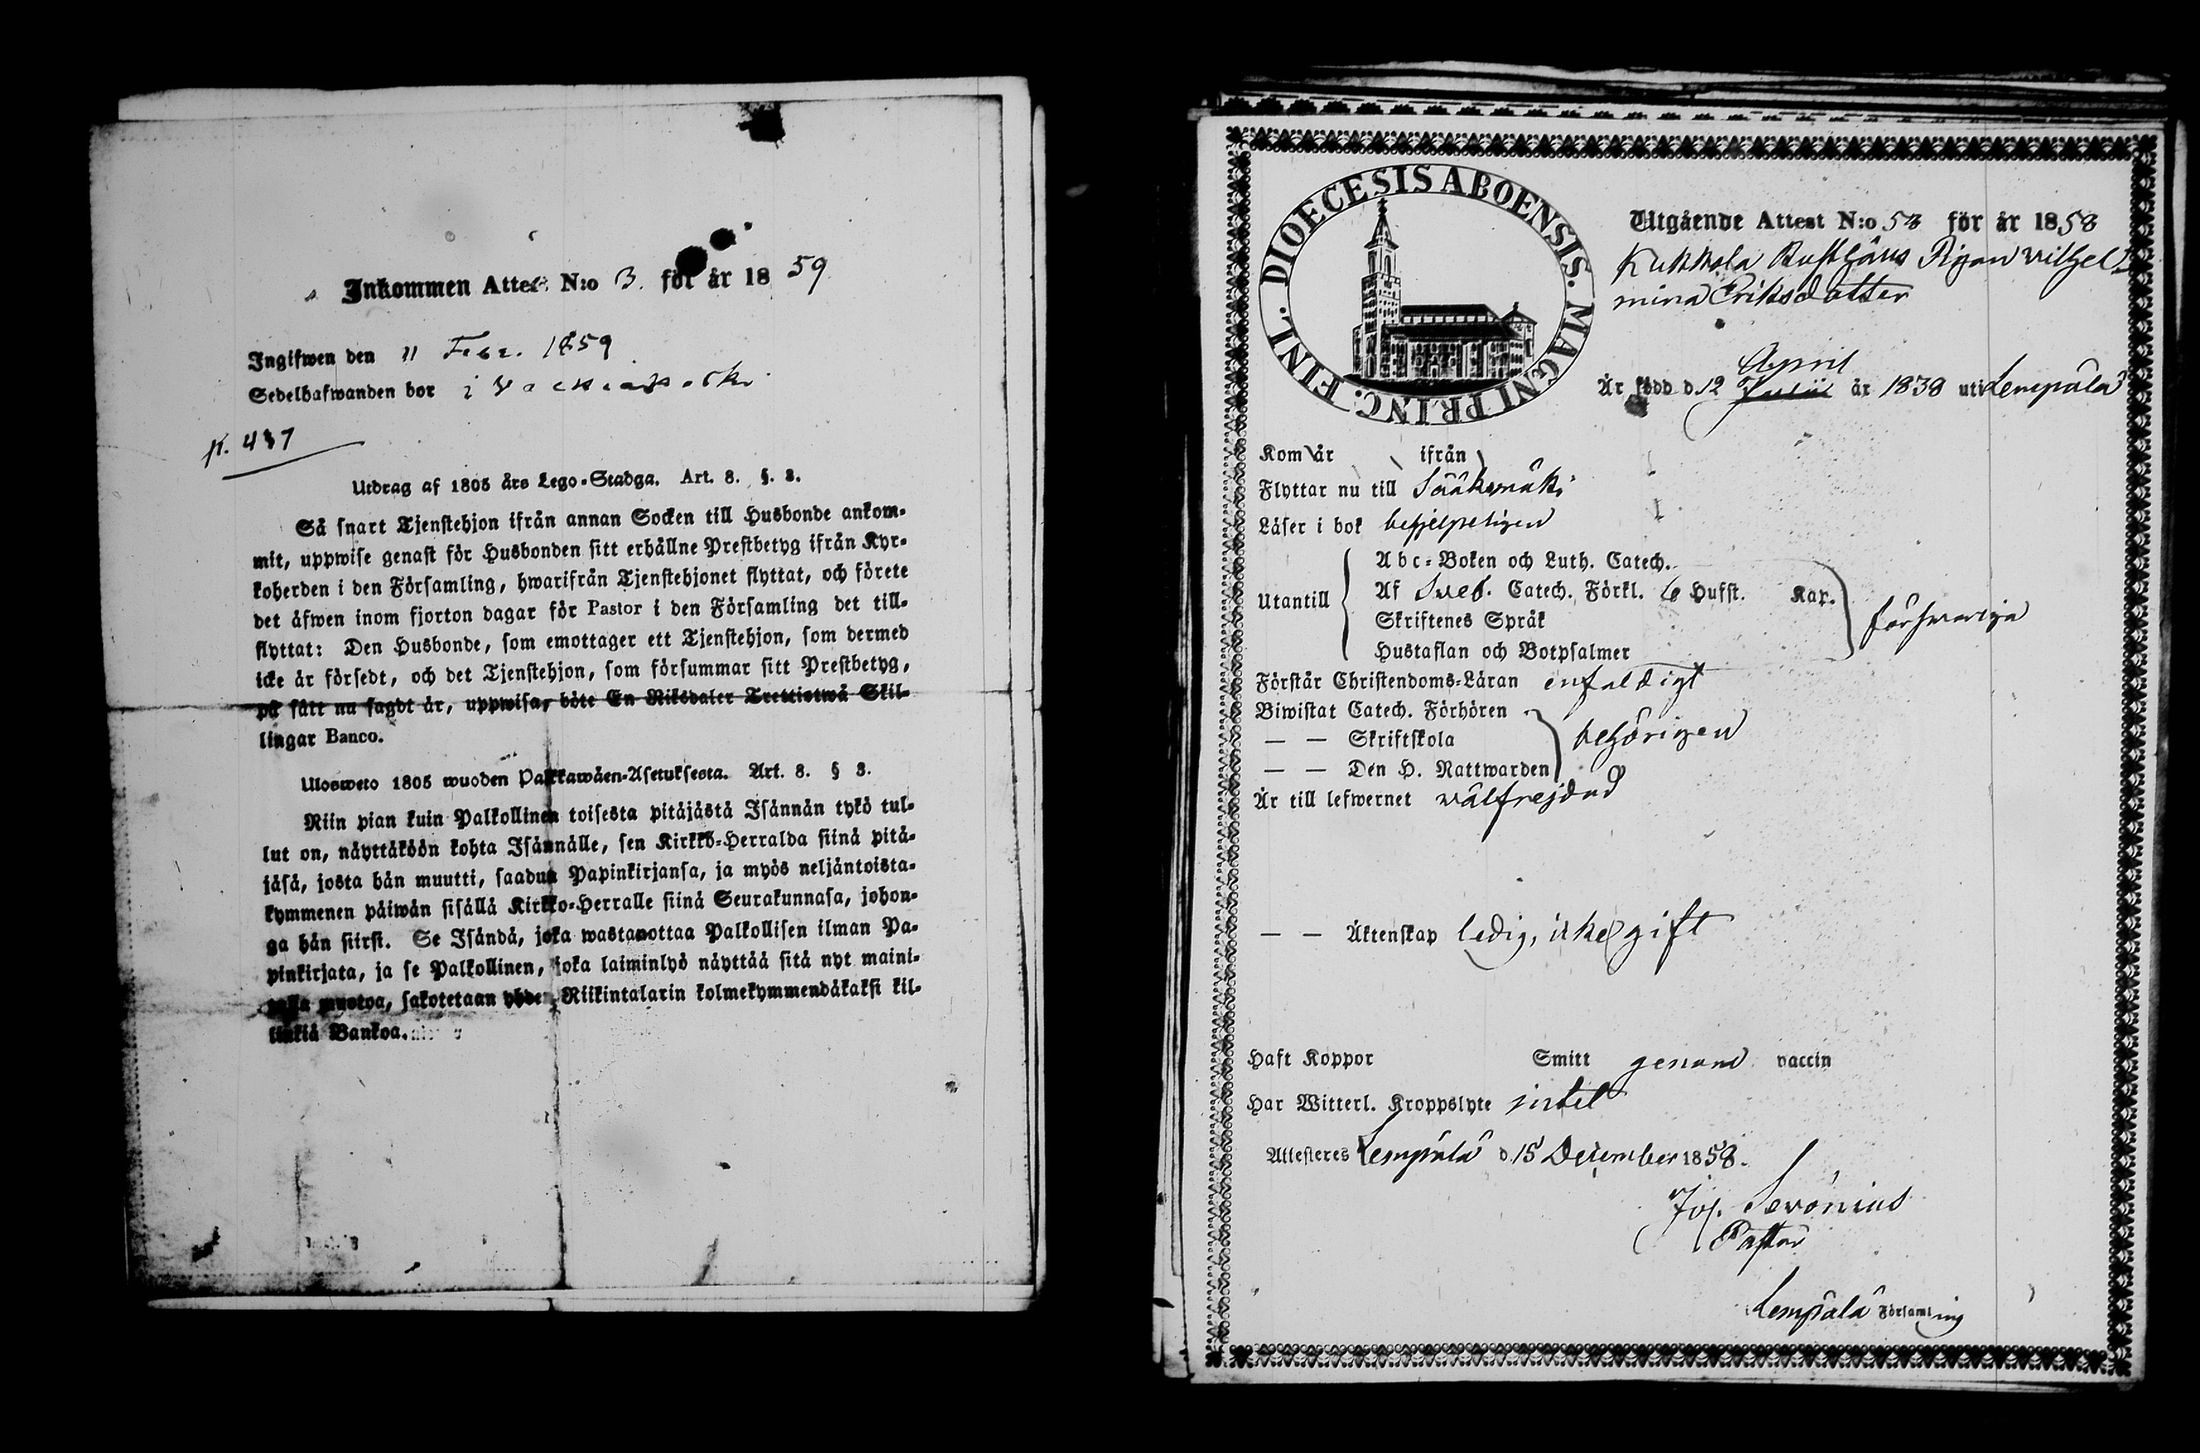 Inkommen Attest N:o 3. för år 1859
Ingifwen den 11 Febr. 1859
Sedelhafwanden bor i
p. 437
Utdrag af 1805 års Lego-Stadga. Art. 8. §. 3.
Så snart Tjenstehjon ifrån annan Socken till Husbonde ankom-
mit, uppwise genast för Husbonden sitt erhållne Prestbetyg ifrån Kyr-
koherden i den Församling, hwarifrån Tjenstehjonet flyttat, och förete
det äfwen inom fjorton dagar för Pastor i den Församling det till-
flyttat: Den Husbonde, som emottager ett Tjenstehjon, som dermed
icke är försedt, och det Tjenstehjon, som försummar sitt Prestbetyg,
på sätt nu sagdt är, uppwisa, böte En Riksdaler Trettiotwå Skil-
lingar Banco.
Ulosweto 1805 wuoden Palkkawäen-Asetuksesta. Art. 8. § 3.
Niin pian kuin Palkollinen toisesta pitäjästä Isännän tykö tul-
lut on, näyttäköön kohta Isännälle, sen Kirkko-Herralda siinä pitä-
jäsä, josta hän muutti, saadun Papinkirjansa, ja myös neljäntoista-
kymmenen päiwän sisällä Kirkko-Herralle siinä Seurakunnasa, johon-
ga hän siirsi. Se Isändä, joka wastanottaa Palkollisen ilman Pa-
pinkirjata, ja se Palkollinen, joka laiminlyö näyttää sitä nyt maini-
tulla muotoa, sakotetaan yhden Riikintalarin kolmekymmendäkaksi kil-
linkiä Bankoa.
DIOECESIS ABOENSIS. MAGNI PRINC. FINL.
Utgående Attest N:o 58 för år 1858
Kukkola Rusthåls Pigan Vilhel-
mina Eriksdotter
April
Är född d. 12 Julii år 1838 uti Lempälä
Kom år ifrån
Flyttar nu till Sääksmäki
Läser i bok behjelpeligen
Utantill
Abc-Boken och Luth. Catech.
Af Sveb. Catech. Förkl. 6 Hufst. Kap.
Skriftenes Språk
Hustaflan och Botpsalmer
försvarliga
Förstår Christendoms-Läran enfaldigt
Biwistat Catech. Förhören
— — Skriftskola
— — Den H. Nattwarden
behörigen
Är till lefwernet välfrejdad
— — Äktenskap ledig, icke gift
Haft Koppor Smitt genom vaccin
Har Witterl. Kroppslyte intet
Attesteres Lempälä d. 15 December 1858.
Joh. Sevonius
Pastor
Lempälä Församling